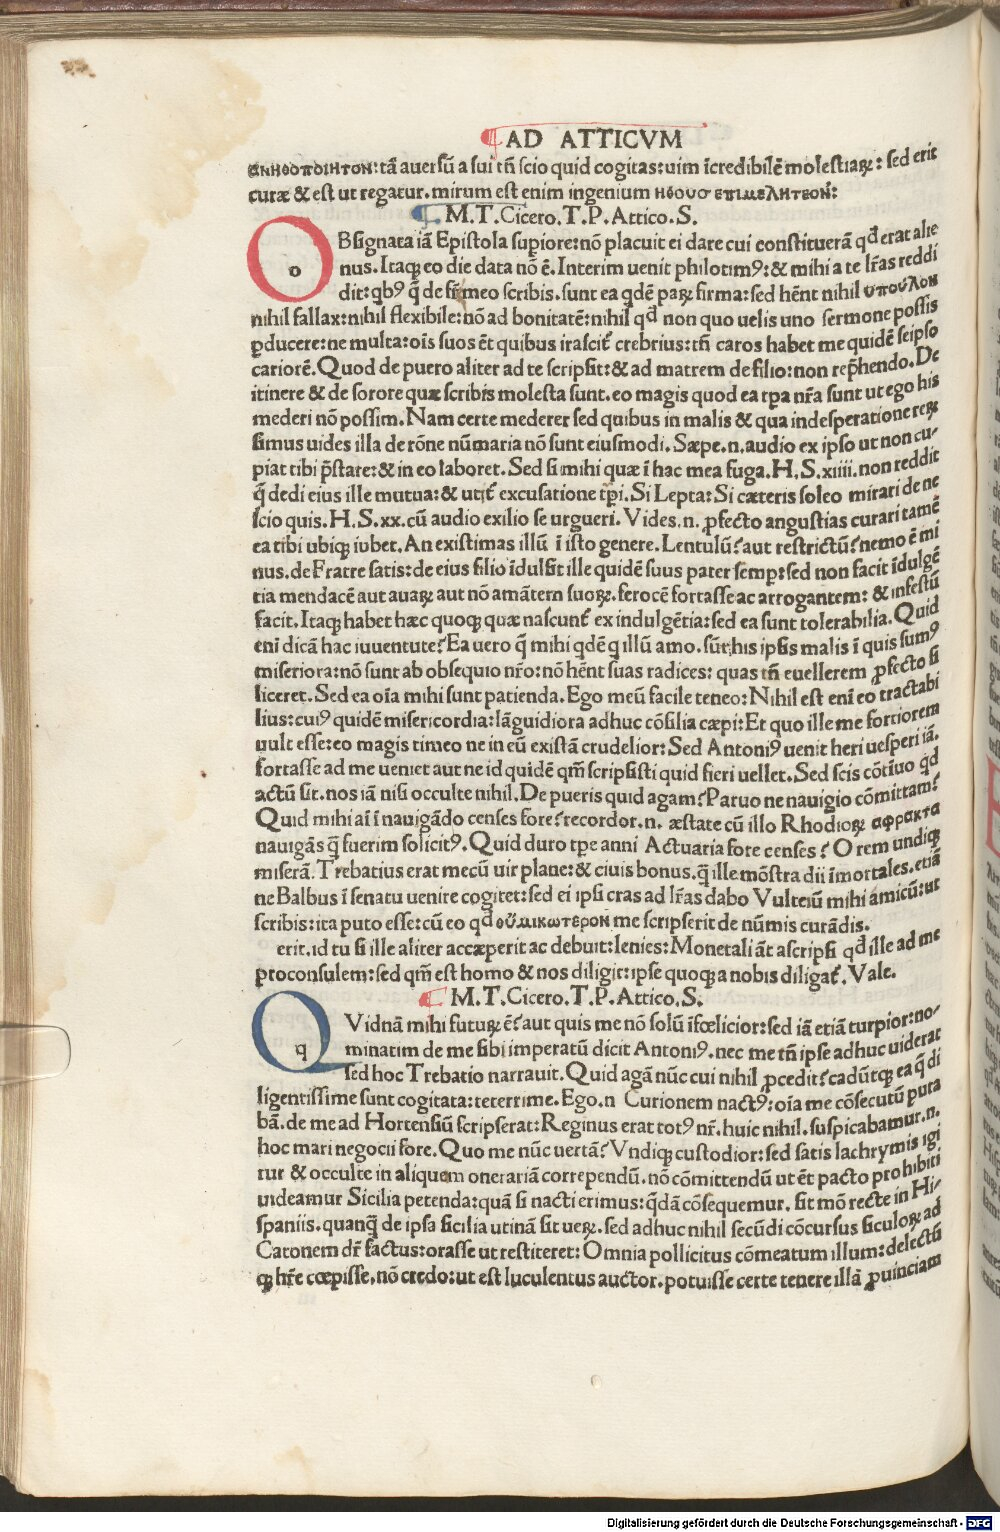 AD ATTICVM
ανηθοποιητον: tã auersũ a sui tñ scio quid cogitas: uim ĩcredibilẽ molestiaꝝ: sed erit
curæ & est ut regatur. mirum est enim ingenium ηθουσ επιμελητεον:
M.T.Cicero.T.P.Attico.S.
o
Bsignata iã Epistola supiore: nõ placuit ei dare cui constituerã qđ erat alie
nus. Itaqꝫ eo die data nõ ẽ. Interim uenit philotimꝰ: & mihi a te lr̃as reddi
dit: qbꝰ q̃ de fr̃e meo scribis. sunt ea qdẽ paꝝ firma: sed hẽnt nihil υπουλον
nihil fallax: nihil flexibile: nõ ad bonitatẽ: nihil qđ non quo uelis uno sermone possis
ꝓducere: ne multa: oĩs suos ẽt quibus irascit̃ crebrius: tñ caros habet me quidẽ seipso
cariorẽ. Quod de puero aliter ad te scripsit: & ad matrem de filio: non rep̃hendo. De
itinere & de sorore quæ scribis molesta sunt. eo magis quod ea tp̃a nr̃a sunt ut ego his
mederi nõ possim. Nam certe mederer sed quibus in malis & qua indesperatione reꝝ
simus uides illa de rõne nũmaria nõ sunt eiusmodi. Sæpe.n. audio ex ipso ut non cu-
piat tibi p̃stare: & in eo laboret. Sed si mihi quæ ĩ hac mea fuga. H.S.xiiii. non reddit
q̃ dedi eius ille mutua: & utit̃ excusatione tp̃i. Si Lepta: Si cæteris soleo mirari de ne
scio quis. H.S.xx. cũ audio exilio se urgueri. Vides.n. ꝓfecto angustias curari tamẽ
ea tibi ubiqꝫ iubet. An existimas illũ ĩ isto genere. Lentulũ? aut restrictũ? nemo ẽ mi
nus. de Fratre satis: de eius filio ĩdulsit ille quidẽ suus pater semp: sed non facit ĩdulgẽ
tia mendacẽ aut auaꝝ aut nõ amãtem suoꝝ. ferocẽ fortasse ac arrogantem: & infestũ
facit. Itaqꝫ habet hæc quoqꝫ quæ nascunt̃ ex indulgẽtia: sed ea sunt tolerabilia. Quid
enĩ dicã hac iuuentute? Ea uero q̃ mihi qdẽ q illũ amo. sũt his ipsis malis ĩ quis sumꝰ
miseriora: nõ sunt ab obsequio nr̃o: nõ hẽnt suas radices: quas tñ euellerem ꝓfecto si
liceret. Sed ea oĩa mihi sunt patienda. Ego meũ facile teneo: Nihil est enĩ eo tractabi
lius: cuiꝰ quidẽ misericordia: lãguidiora adhuc cõsilia cæpi: Et quo ille me fortiorem
uult esse: eo magis timeo ne in eũ existã crudelior: Sed Antoniꝰ uenit heri uesperi iã.
fortasse ad me ueniet aut ne id quidẽ qm̃ scripsisti quid fieri uellet. Sed scis cõtĩuo qđ
actũ sit. nos iã nisi occulte nihil. De pueris quid agam? Paruo ne nauigio cõmittam?
Quid mihi aĩ ĩ nauigãdo censes fore? recordor.n. æstate cũ illo Rhodioꝝ αφρακτα
nauigãs q̃ fuerim solicitꝰ. Quid duro tp̃e anni Actuaria fore censes? O rem undiqꝫ
miserã. Trebatius erat mecũ uir plane: & ciuis bonus. q̃ ille mõstra dii ĩmortales. etiã
ne Balbus ĩ senatu uenire cogitet: sed ei ipsi cras ad lr̃as dabo Vulteiũ mihi amicũ: ut
scribis: ita puto esse: cũ eo qđ ουμικωτερον me scripserit de nũmis curãdis.
erit. id tu si ille aliter accæperit ac debuit: lenies: Monetali ãt ascripsi qđ ille ad me
proconsulem: sed qm̃ est homo & nos diligit: ipse quoqꝫ a nobis diligat̃. Vale.
M.T.Cicero.T.P.Attico.S.
q
Vidnã mihi futuꝝ ẽ? aut quis me nõ solũ ĩfœlicior: sed iã etiã turpior: no-
minatim de me sibi imperatũ dicit Antoniꝰ. nec me tñ ipse adhuc uiderat
sed hoc Trebatio narrauit. Quid agã nũc cui nihil ꝓcedit? cadũtqꝫ ea q̃ di
ligentissime sunt cogitata: teterrime. Ego.n Curionem nactꝰ: oĩa me cõsecutũ puta
bã. de me ad Hortensiũ scripserat: Reginus erat totꝰ nr̃. huic nihil. suspicabamur.n.
hoc mari negocii fore. Quo me nũc uertã? Vndiqꝫ custodior: sed satis lachrymis igi
tur & occulte in aliquam onerariã correpndũ. nõ cõmittendũ ut ẽt pacto prohibiti
uideamur Sicilia petenda: quã si nacti erimus: qdã cõsequemur. sit mõ recte in Hi-
spaniis. quanq̃ de ipsa sicilia utinã sit ueꝝ. sed adhuc nihil secũdi cõcursus siculoꝝ ad
Catonem dr̃ factus: orasse ut restiteret: Omnia pollicitus cõmeatum illum: delectũ
qꝫ hr̃e cœpisse. nõ credo: ut est luculentus auctor. potuisse certe tenere illã ꝓuinciam
Digitalisierung gefördert durch die Deutsche Forschungsgemeinschaft - DFG